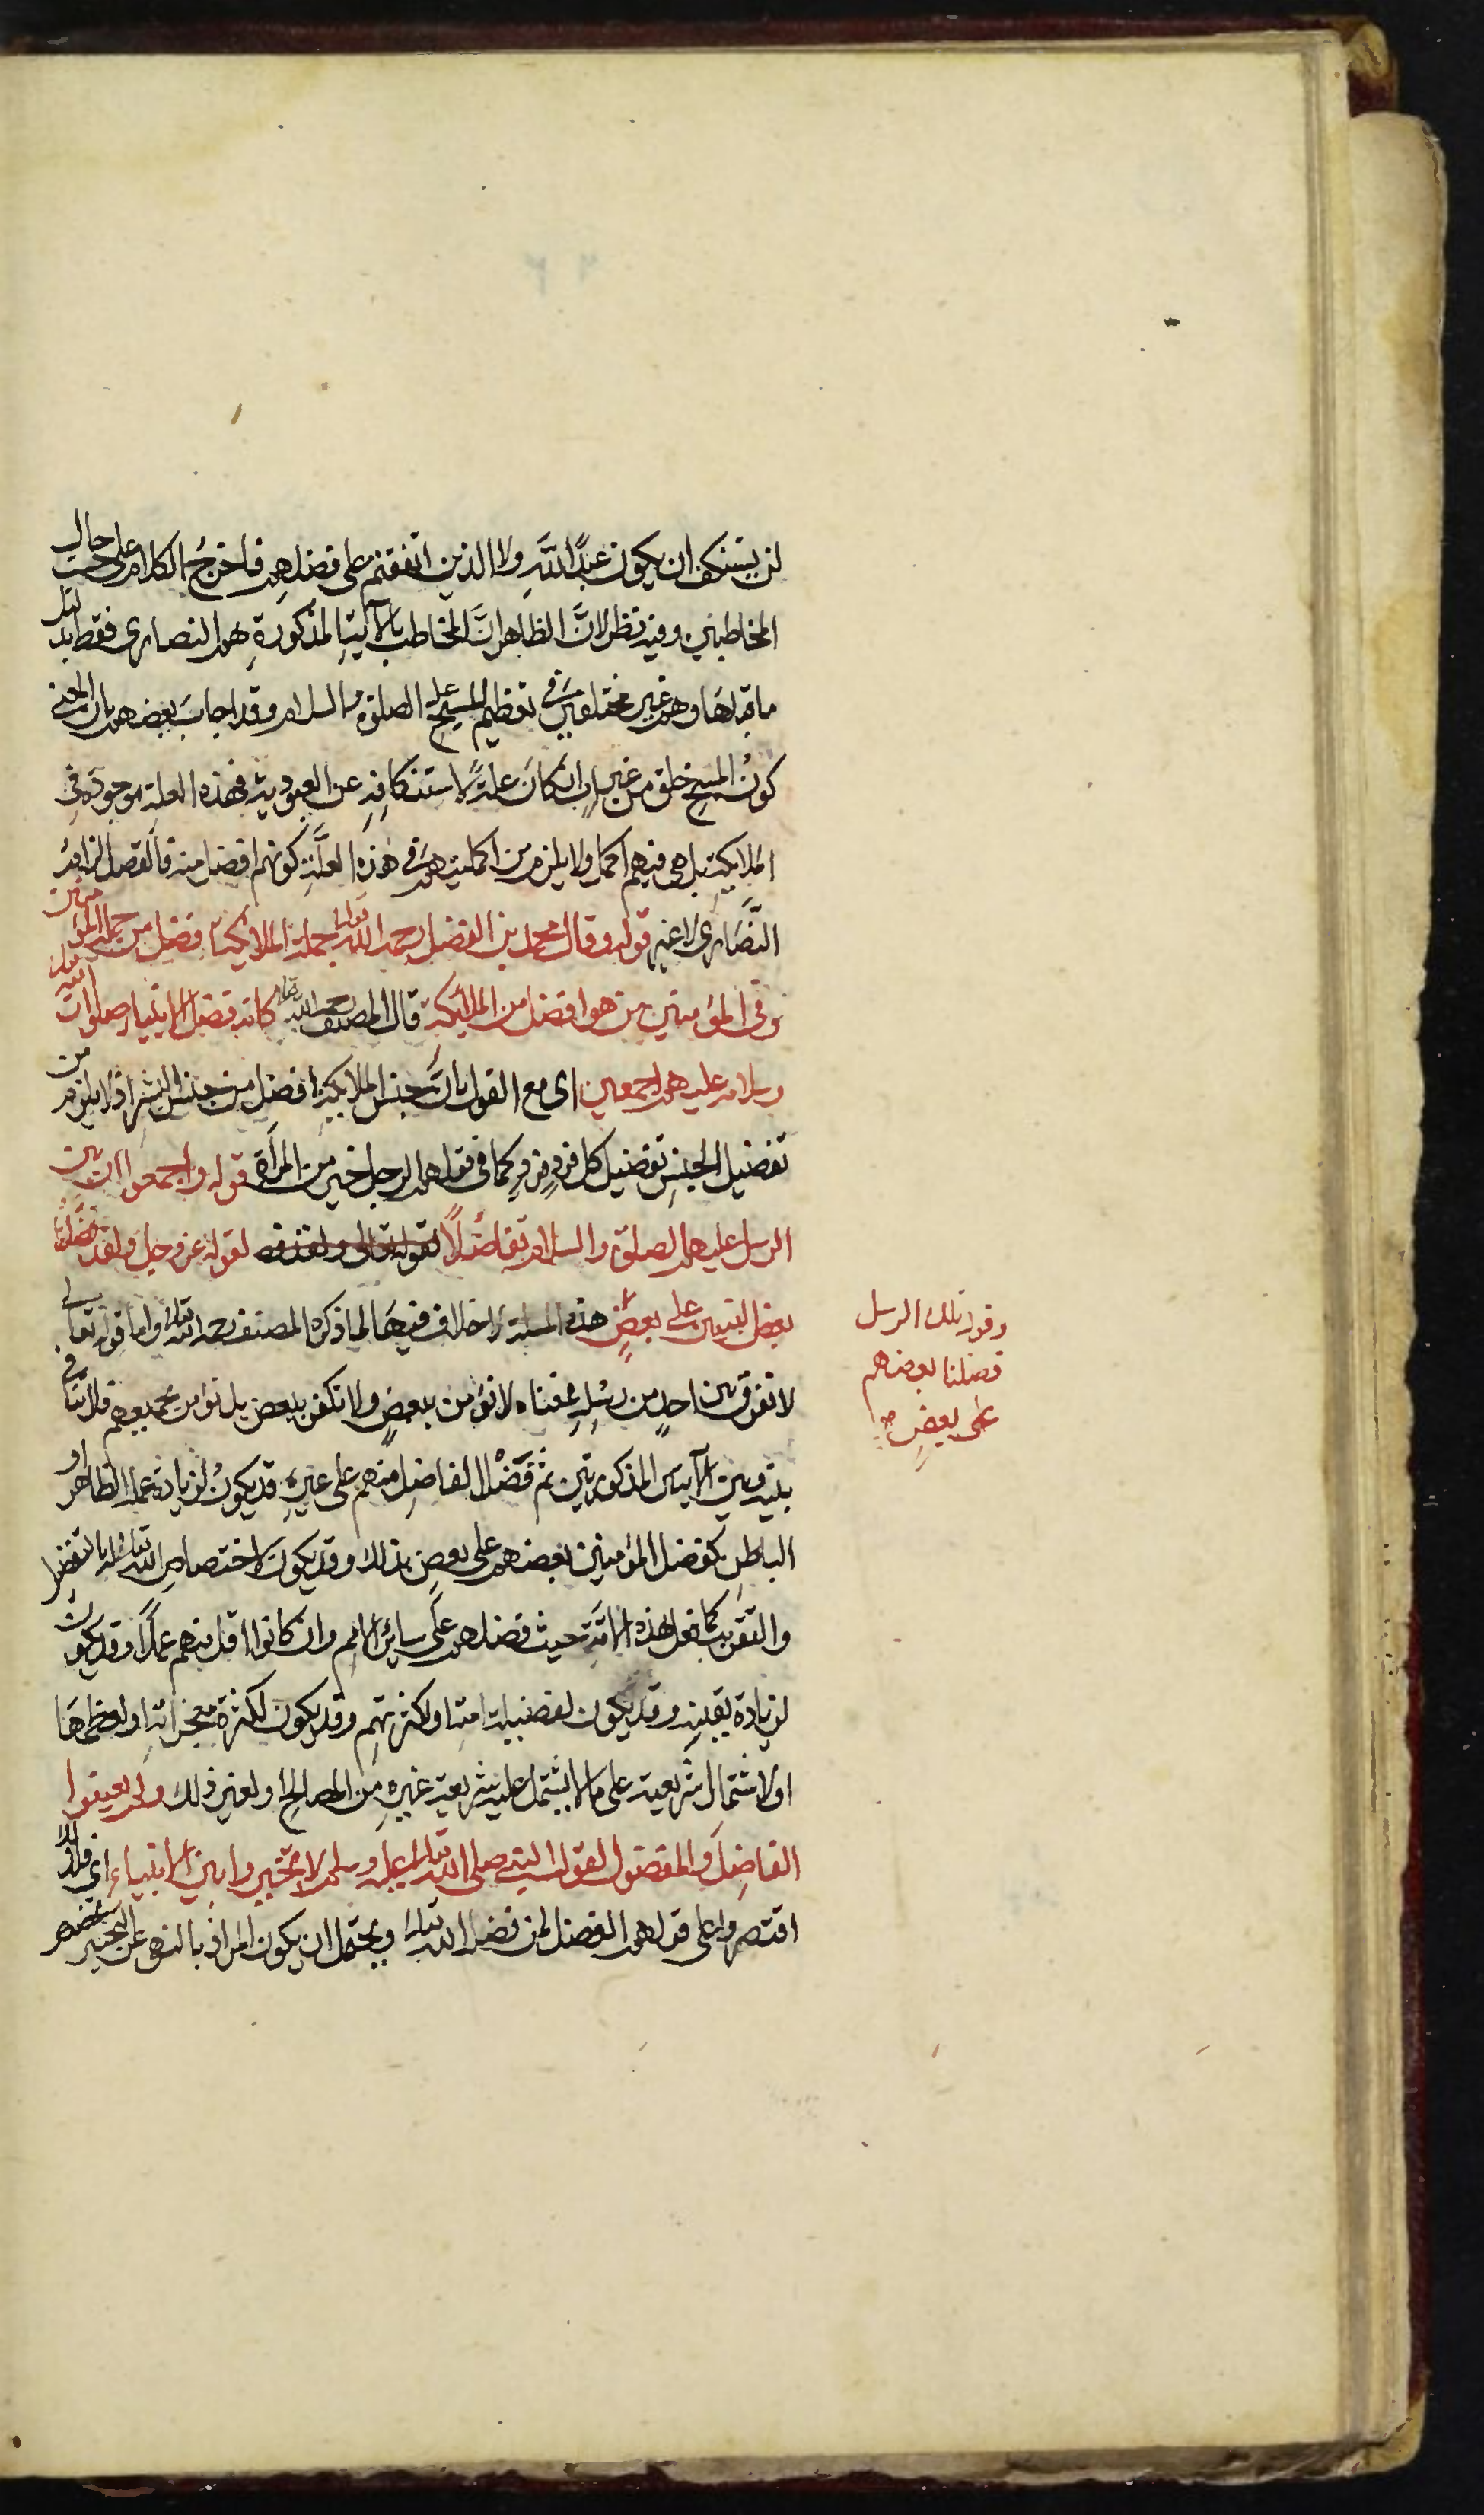 لن يستنكف ان يكون عبدًا لله ولا الذين اتفقتم على فضلهم فاخرج الكلام على حسب حال
المخاطبين وفيه نظر لانَّ الظاهر انَّ المخاطب بالآية المذكورةِ هم النصارى فقط بدليل
ما قبلها وهم غير مختلفين في تعظيم المسيح عليه الصلوة والسلام وقد اجاب بعضهم بان المعنى
كونُ المسيح خلق من غير ابٍ ان كان علةً لاستنكافهِ عن العبودية فهذه العلة موجودة في
الملايكة بل هى فيهم اكمل ولا يلزم من اكمليتهم في هذه العلَّةِ كونهم افضل منه فالقصد الزام
النَّصَارى لا غير قوله وقال محمد بن الفضل رحمه الله تعالى جملة الملائكة افضل من جملة المؤمنين
وفى المؤمنين من هو افضل من الملائكة قال المصنف رحمه الله تعالى كانه فضل الانبياء صلوات الله
وسلامه عليهم اجمعين اى مع القول بانَّ جنس الملايكة افضل من جنس البشر اذ لا يلزم من
تفضيل الجنسِ تفضيل كل فردٍ فردٍ كما فى قولهم الرجل خير من المرأة قوله واجمعوا ان بين
الرسل عليهم الصلوة والسلام تفاضُلًا لقوله تعالى ولقد فض لقوله عز وجل ولقد فضلنا
بعض النبيين على بعضٍ هذه المسئلة لا خلاف فيها لما ذكره المصنف رحمه الله تعالى واما قوله تعالى
وقوله تلك الرسل
فضلنا بعضهم
على بعضٍ صح
لا نفرق بين احدٍ من رسلِهِ فمعناه لا نؤمن ببعضٍ ولا نكفر ببعض بل نؤمن بجميعهم فلا تنافى
بينه وبين الآيتين المذكورتين ثم فَضْل الفاضِلِ منهم على غيرِهِ قد يكونُ لزيادة عمله الظاهر او
الباطنِ كفضل المؤمنين بعضهم على بعضٍ بذلك وقد يكون لاختصاصِ الله تعالى له بالتفضل
والتقريب كما فعل بهذه الامَّةِ حيث فضلهم على سائر الامم وان كانوا اقل منهم عملًا وقد يكون
لزيادة يقينهِ وقد يكون لفضيلة امته او لكثرتهم وقد يكون لكثرة معجزاتهِ او لعظمها
او لاشتمال شريعته على ما لا يشتمل عليه شريعة غيره من المصالح او لغير ذلك ولم يعينوا
الفاضِلَ والمفضول لقول النبي صلى الله تعالى عليه وسلم لا تخيروا بين الانبياء اى فلذلك
اقتصروا على قولهم الفضل لمن فضله الله تعالى ويحتمل ان يكون المراد بالنهى عن التخيير بعضهم